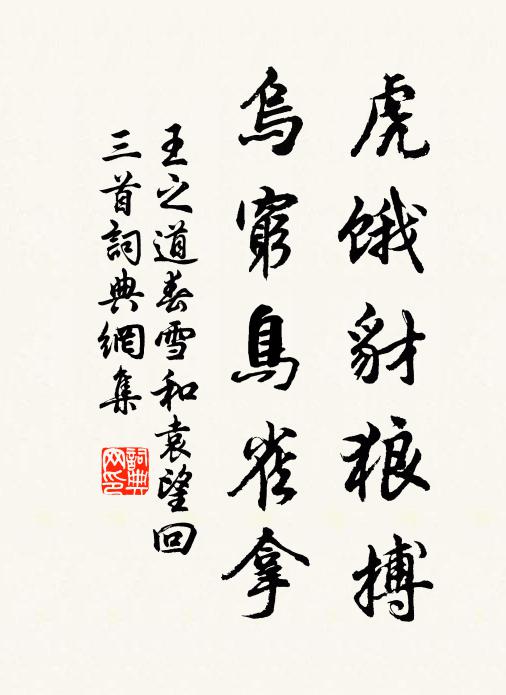 虎饿豺狼搏
乌穷鳥雀拿
王之道春雪和袁望回
三首詞典網集
詞典网印